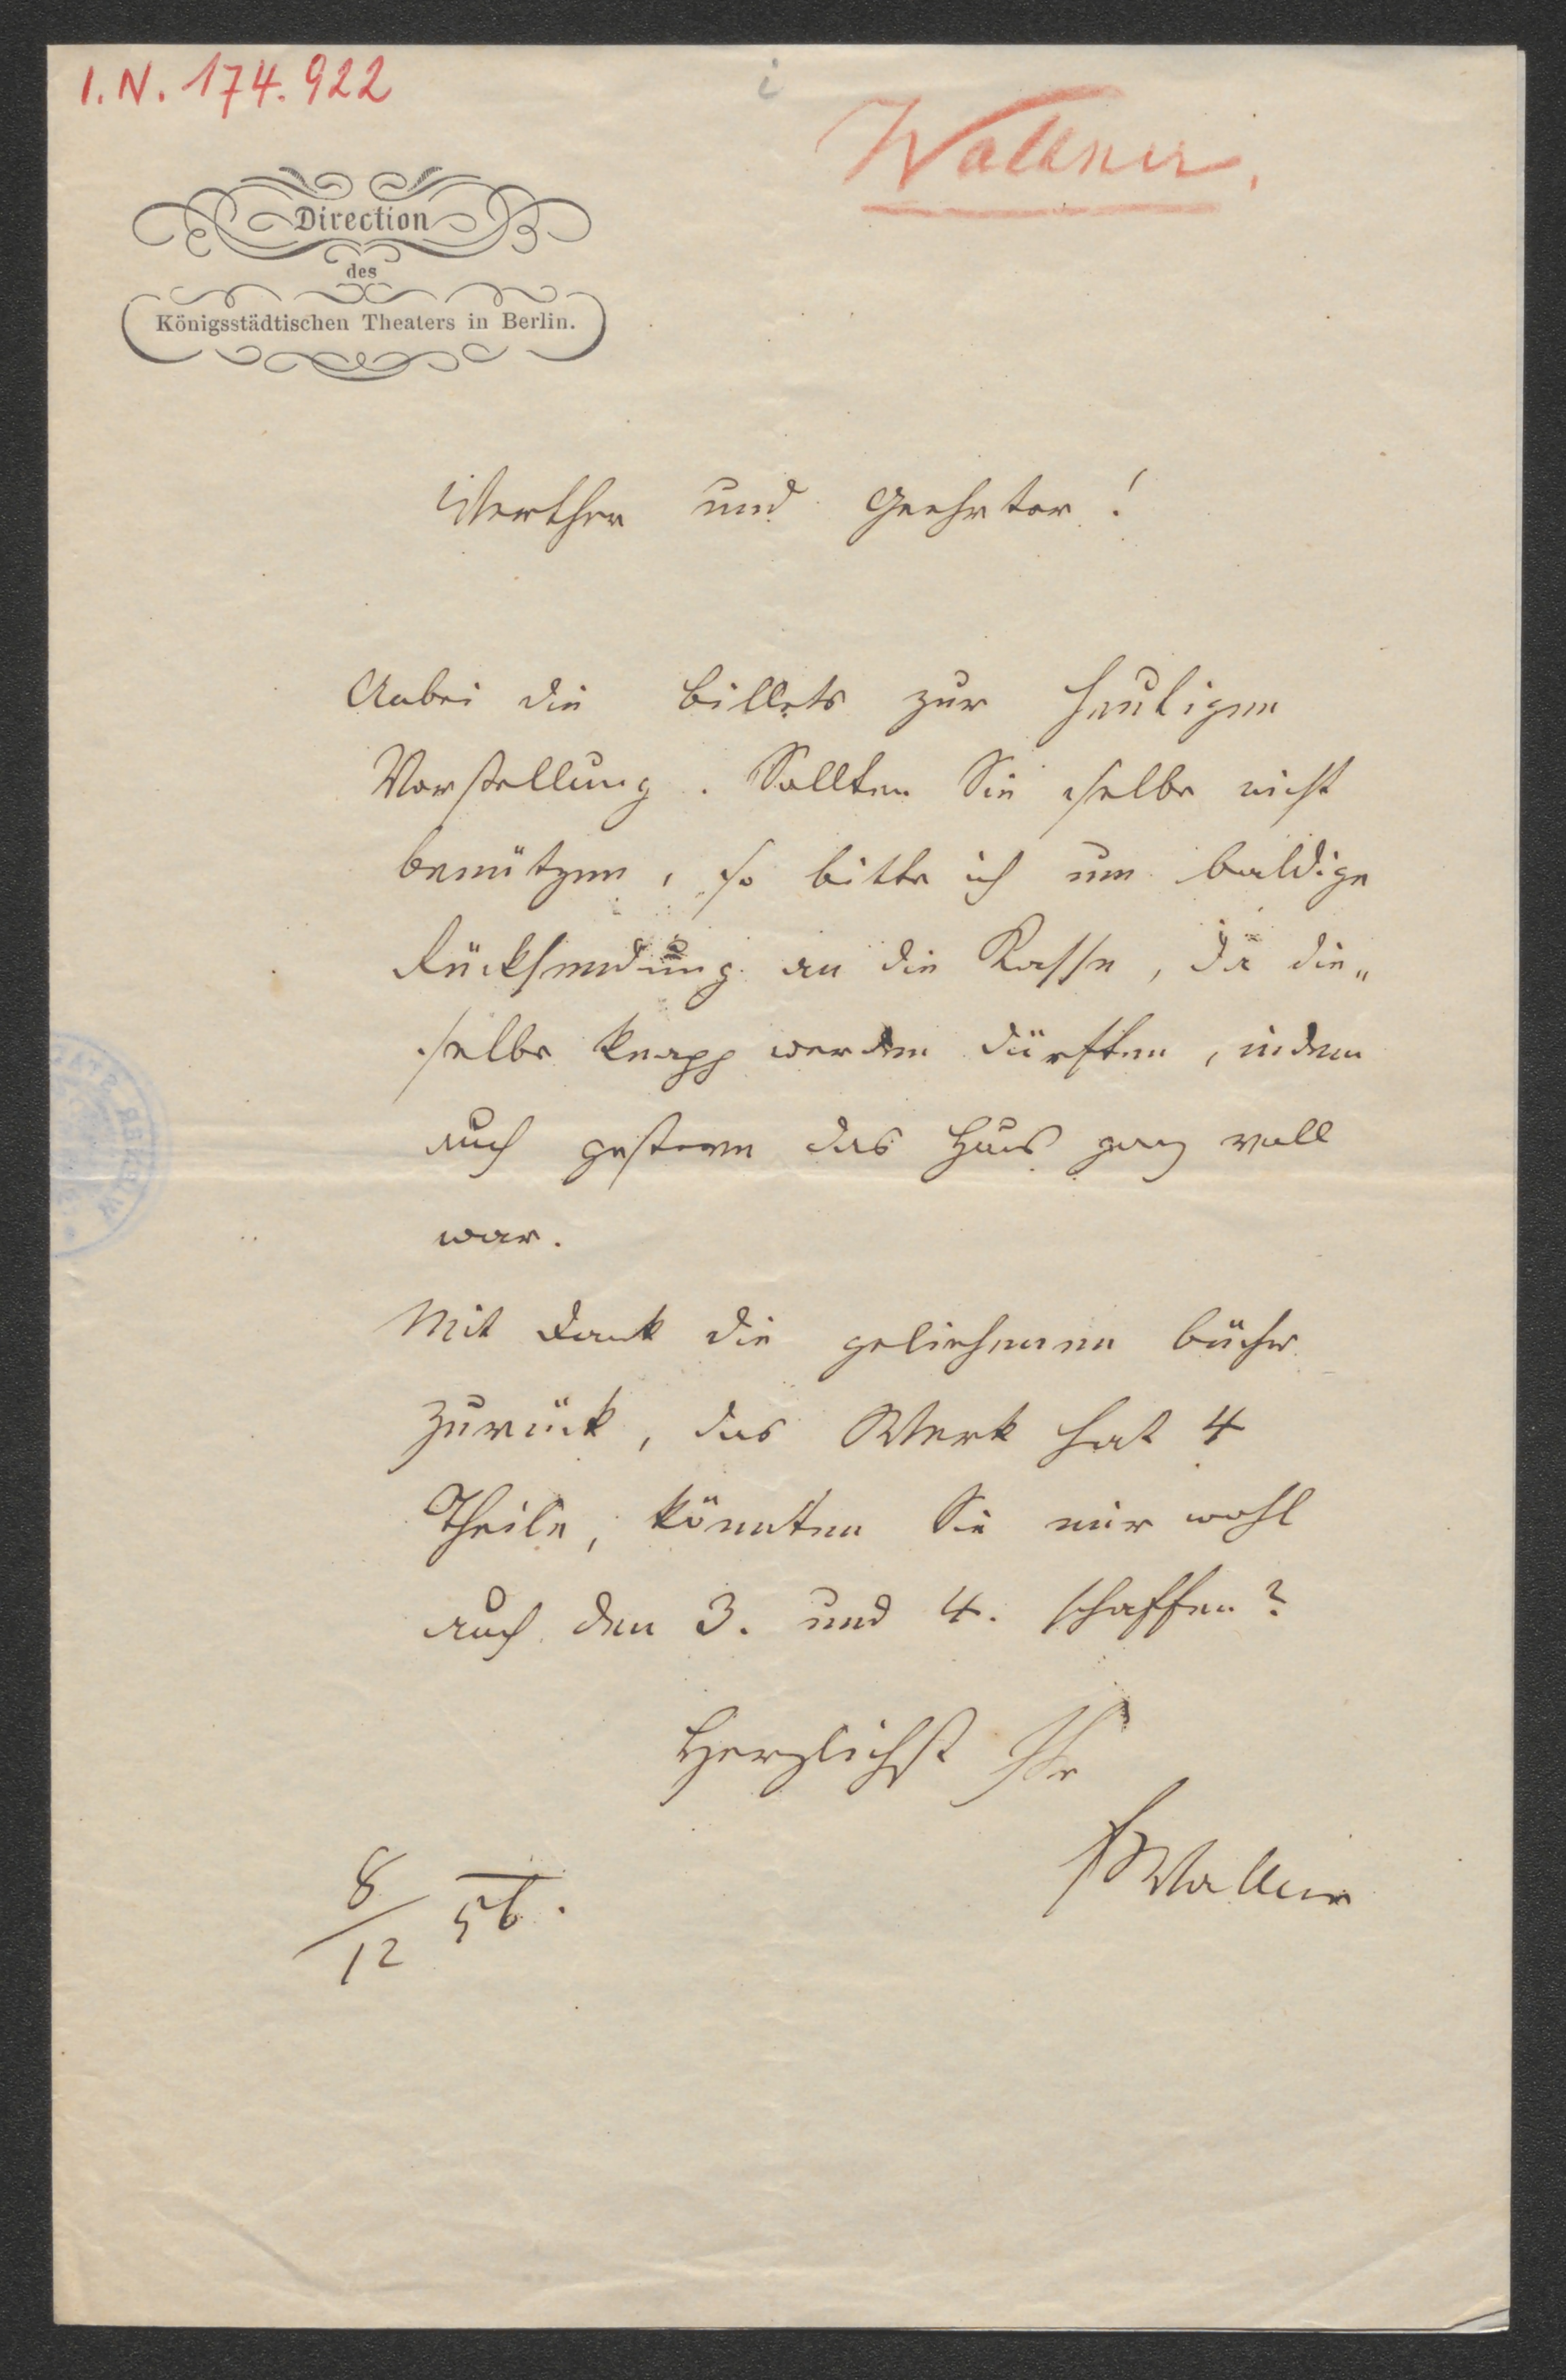 I.N. 174.922
Wallner.
Direction
des
Königsstädtischen Theaters in Berlin.
Werther und Geehrter!
Anbei die Billets zur heutigen
Vorstellung. Sollten Sie selbe nicht
benützen, so bitte ich um baldige
Rücksendung an die Kasse, da die„
selbe knapp werden dürften, indem
auch gestern das Haus ganz voll
war.
Mit Dank die geliehenen Bücher
zurück, das Werk hat 4
Theile, könnten Sie mir wohl
auch den 3. und 4. schaffen?
Herzlichst Ihr
FWallner
8/12 56.